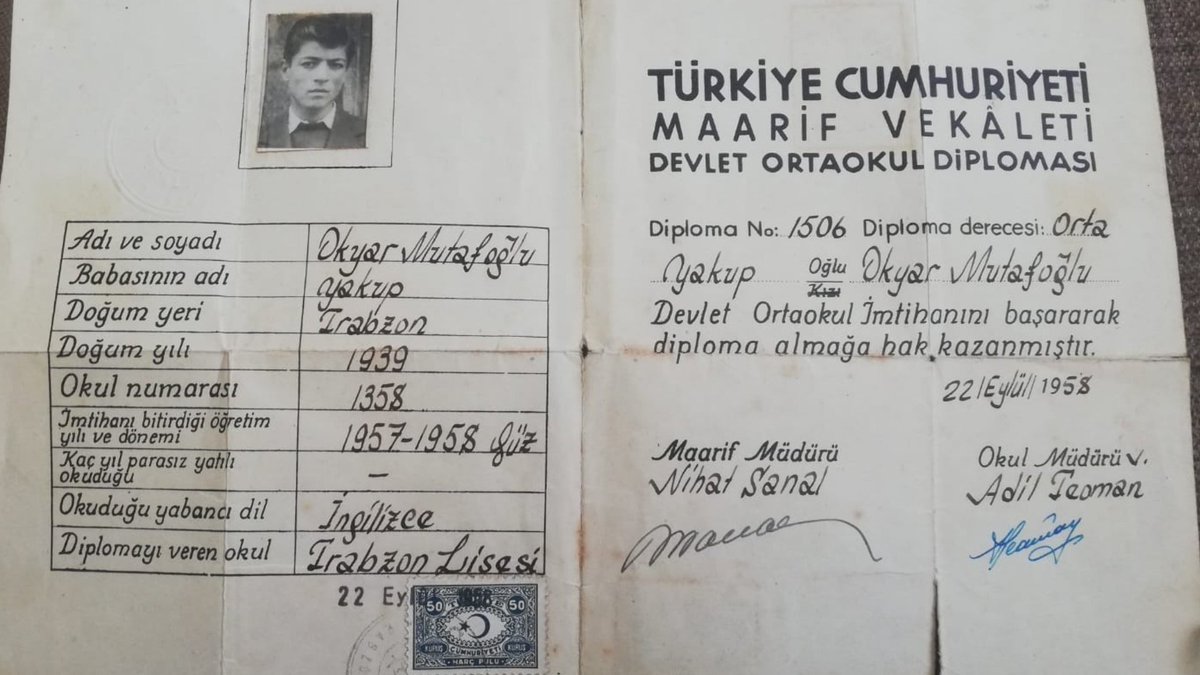 Adı ve soyadı Okyar Mutafoğlu
Babasının adı Yakup
Doğum yeri Trabzon
Doğum yılı 1939
Okul numarası 1358
İmtihanı bitirdiği öğretim
yılı ve dönemi 1957-1958 Güz
Kaç yıl parasız yatılı
okuduğu —
Okuduğu yabancı dil İngilizce
Diplomayı veren okul Trabzon Lisesi
22 Eylül 1958
50 50
KURUŞ CUMHURİYETİ KURUŞ
HARÇ PULU
TÜRKİYE CUMHURİYETİ
MAARİF VEKÂLETİ
DEVLET ORTAOKUL DİPLOMASI
Diploma No: 1506 Diploma derecesi: Orta
Yakup Oğlu Okyar Mutafoğlu
Kızı
Devlet Ortaokul İmtihanını başararak
diploma almağa hak kazanmıştır.
22/Eylül/1958
Maarif Müdürü
Nihat Sanal
Okul Müdürü v.
Adil Teoman